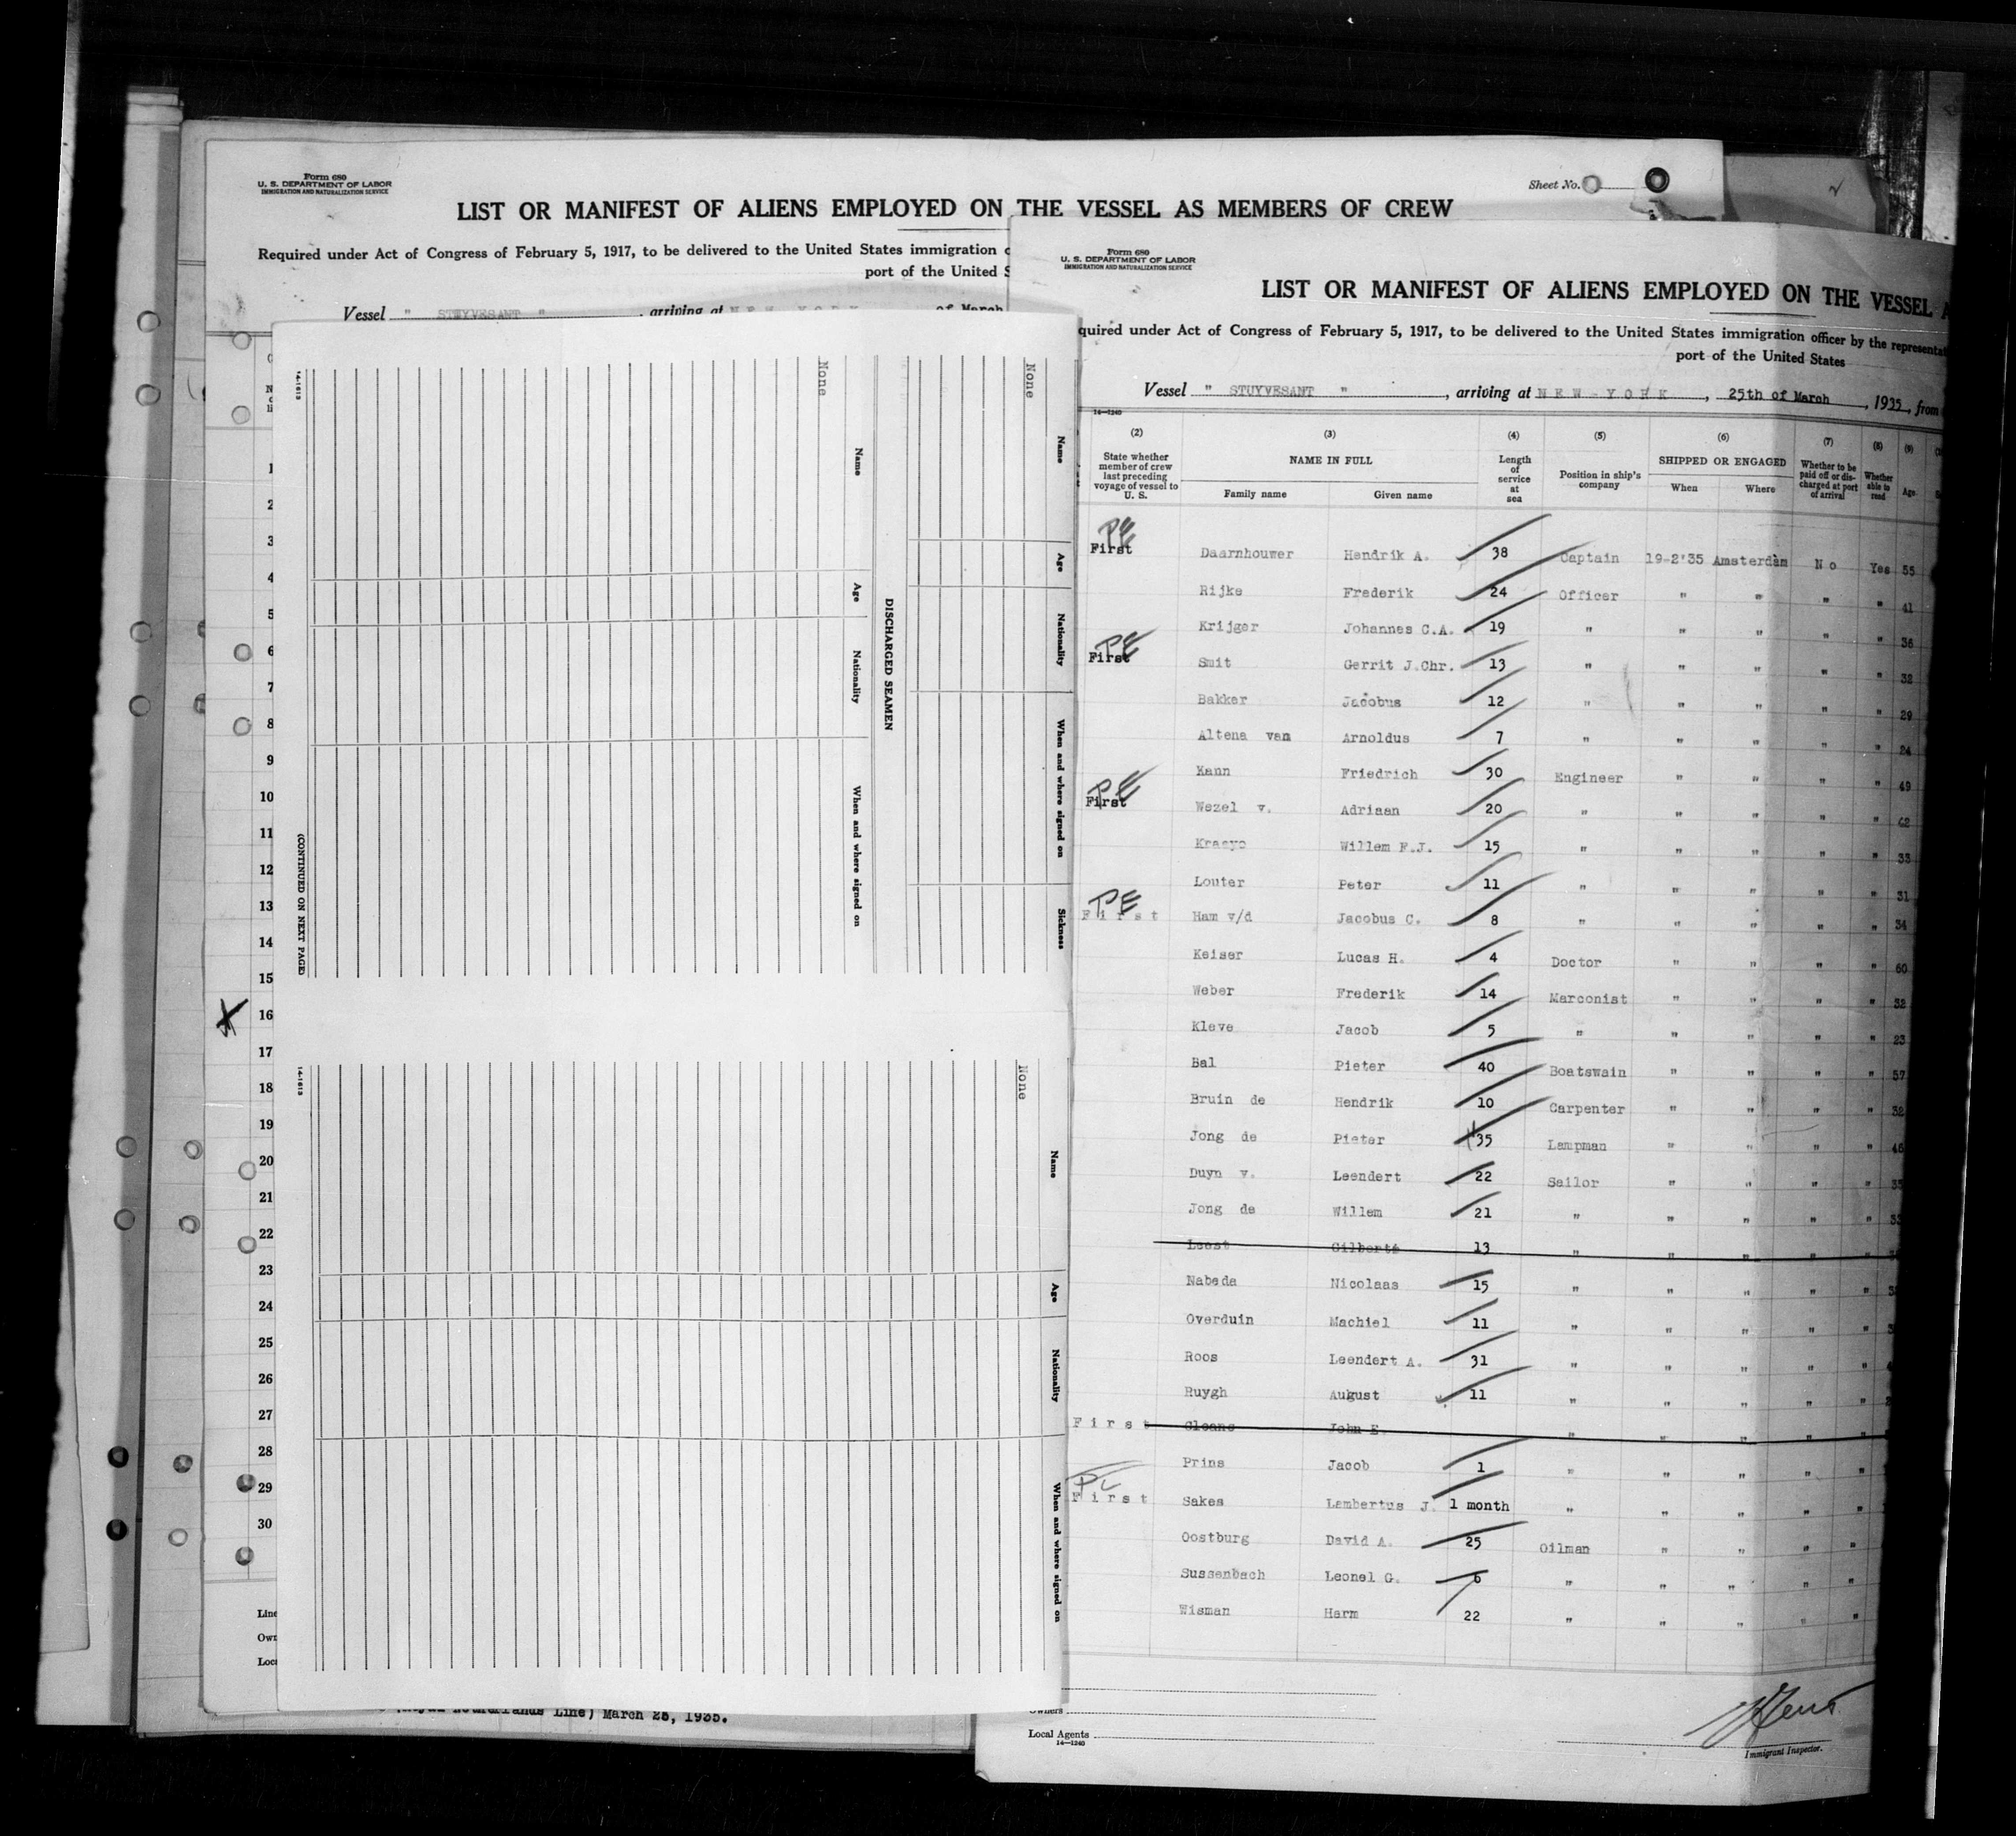 Form 680
U. S. DEPARTMENT OF LABOR
IMMIGRATION AND NATURALIZATION SERVICE
Sheet No.
LIST OR MANIFEST OF ALIENS EMPLOYED ON THE VESSEL AS MEMBERS OF CREW
Required under Act of Congress of February 5, 1917, to be delivered to the United States immigration
port of the United S
Vessel " STUYVESANT " , arriving at NEW YORK of March
1
2
3
4
5
6
7
8
9
10
11
12
13
14
15
16
17
18
19
20
21
22
23
24
25
26
27
28
29
30
Line
Own
Loca
Line) March 25, 1935.
None
Name
Age
Nationality
When and where signed on
Sickness
DISCHARGED SEAMEN
None
Name
Age
Nationality
When and where signed on
14-1613
(CONTINUED ON NEXT PAGE)
None
Name
Age
Nationality
When and where signed on
14-1613
Form 680
U. S. DEPARTMENT OF LABOR
IMMIGRATION AND NATURALIZATION SERVICE
LIST OR MANIFEST OF ALIENS EMPLOYED ON THE VESSEL A
quired under Act of Congress of February 5, 1917, to be delivered to the United States immigration officer by the representat
port of the United States
Vessel " STUYVESANT " , arriving at NEW-YORK , 25th of March , 1935, from
14-1240
(2) (3) (4) (5) (6) (7) (8) (9)
State whether member of crew last preceding voyage of vessel to U. S. NAME IN FULL Length of service at sea Position in ship's company SHIPPED OR ENGAGED Whether to be paid off or discharged at port of arrival Whether able to read Age
Family name Given name When Where
PE
First Daarnhouwer Hendrik A. 38 Captain 19-2'35 Amsterdam No Yes 55
Rijke Frederik 24 Officer " " " " 41
Krijger Johannes C.A. 19 " " " " " 36
PE
First Smit Gerrit J.Chr. 13 " " " " " 32
Bakker Jacobus 12 " " " " " 29
Altena van Arnoldus 7 " " " " " 24
Kann Friedrich 30 Engineer " " " " 49
PE
First Wezel v. Adriaan 20 " " " " " 42
Willem F.J. 15 " " " " " 33
Louter Peter 11 " " " " " 31
PE
First Ham v/d Jacobus C. 8 " " " " " 34
Keiser Lucas H. 4 Doctor " " " " 60
Weber Frederik 14 Marconist " " " " 32
Kleve Jacob 5 " " " " " 23
Bal Pieter 40 Boatswain " " " " 57
Bruin de Hendrik 10 Carpenter " " " " 32
Jong de Pieter 35 Lampman " " " " 46
Duyn v. Leendert 22 Sailor " " " "
Jong de Willem 21 " " " " "
Leest Gilberté 13 " " " " "
Nabeda Nicolaas 15 " " " " "
Overduin Machiel 11 " " " " "
Roos Leendert A. 31 " " " " "
Ruygh August 11 " " " " "
First John E. " " " " "
Prins Jacob 1 " " " " "
First Sakes Lambertus J. 1 month " " " " "
Oostburg David A. 25 Oilman " " " "
Sussenbach Leonel G. 6 " " " " "
Wisman Harm 22 " " " " "
Owners
Local Agents
14-1240
Immigrant Inspector.